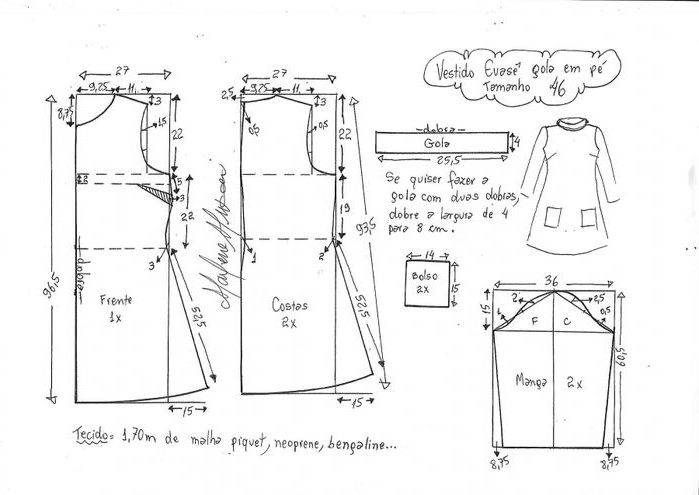 Vestido Evasê gola em pé
Tamanho 46
27
9,25
11
3
8,75
1,5
22
2
5
3
22
3
96,5
dobra
Frente
1x
52,5
15
27
2,5
9,25
11
3
0,5
0,5
22
19
1
2
93,5
Costas
2x
52,5
15
Marlene Mukai
dobra
Gola
4
25,5
Se quiser fazer a
gola com duas dobras,
dobre a largura de 4
para 8 cm.
14
Bolso
2x
15
36
15
2
2,5
1
0,5
F
C
60,5
Manga 2x
8,75
8,75
Tecido = 1,70m de malha piquet, neoprene, bengaline...